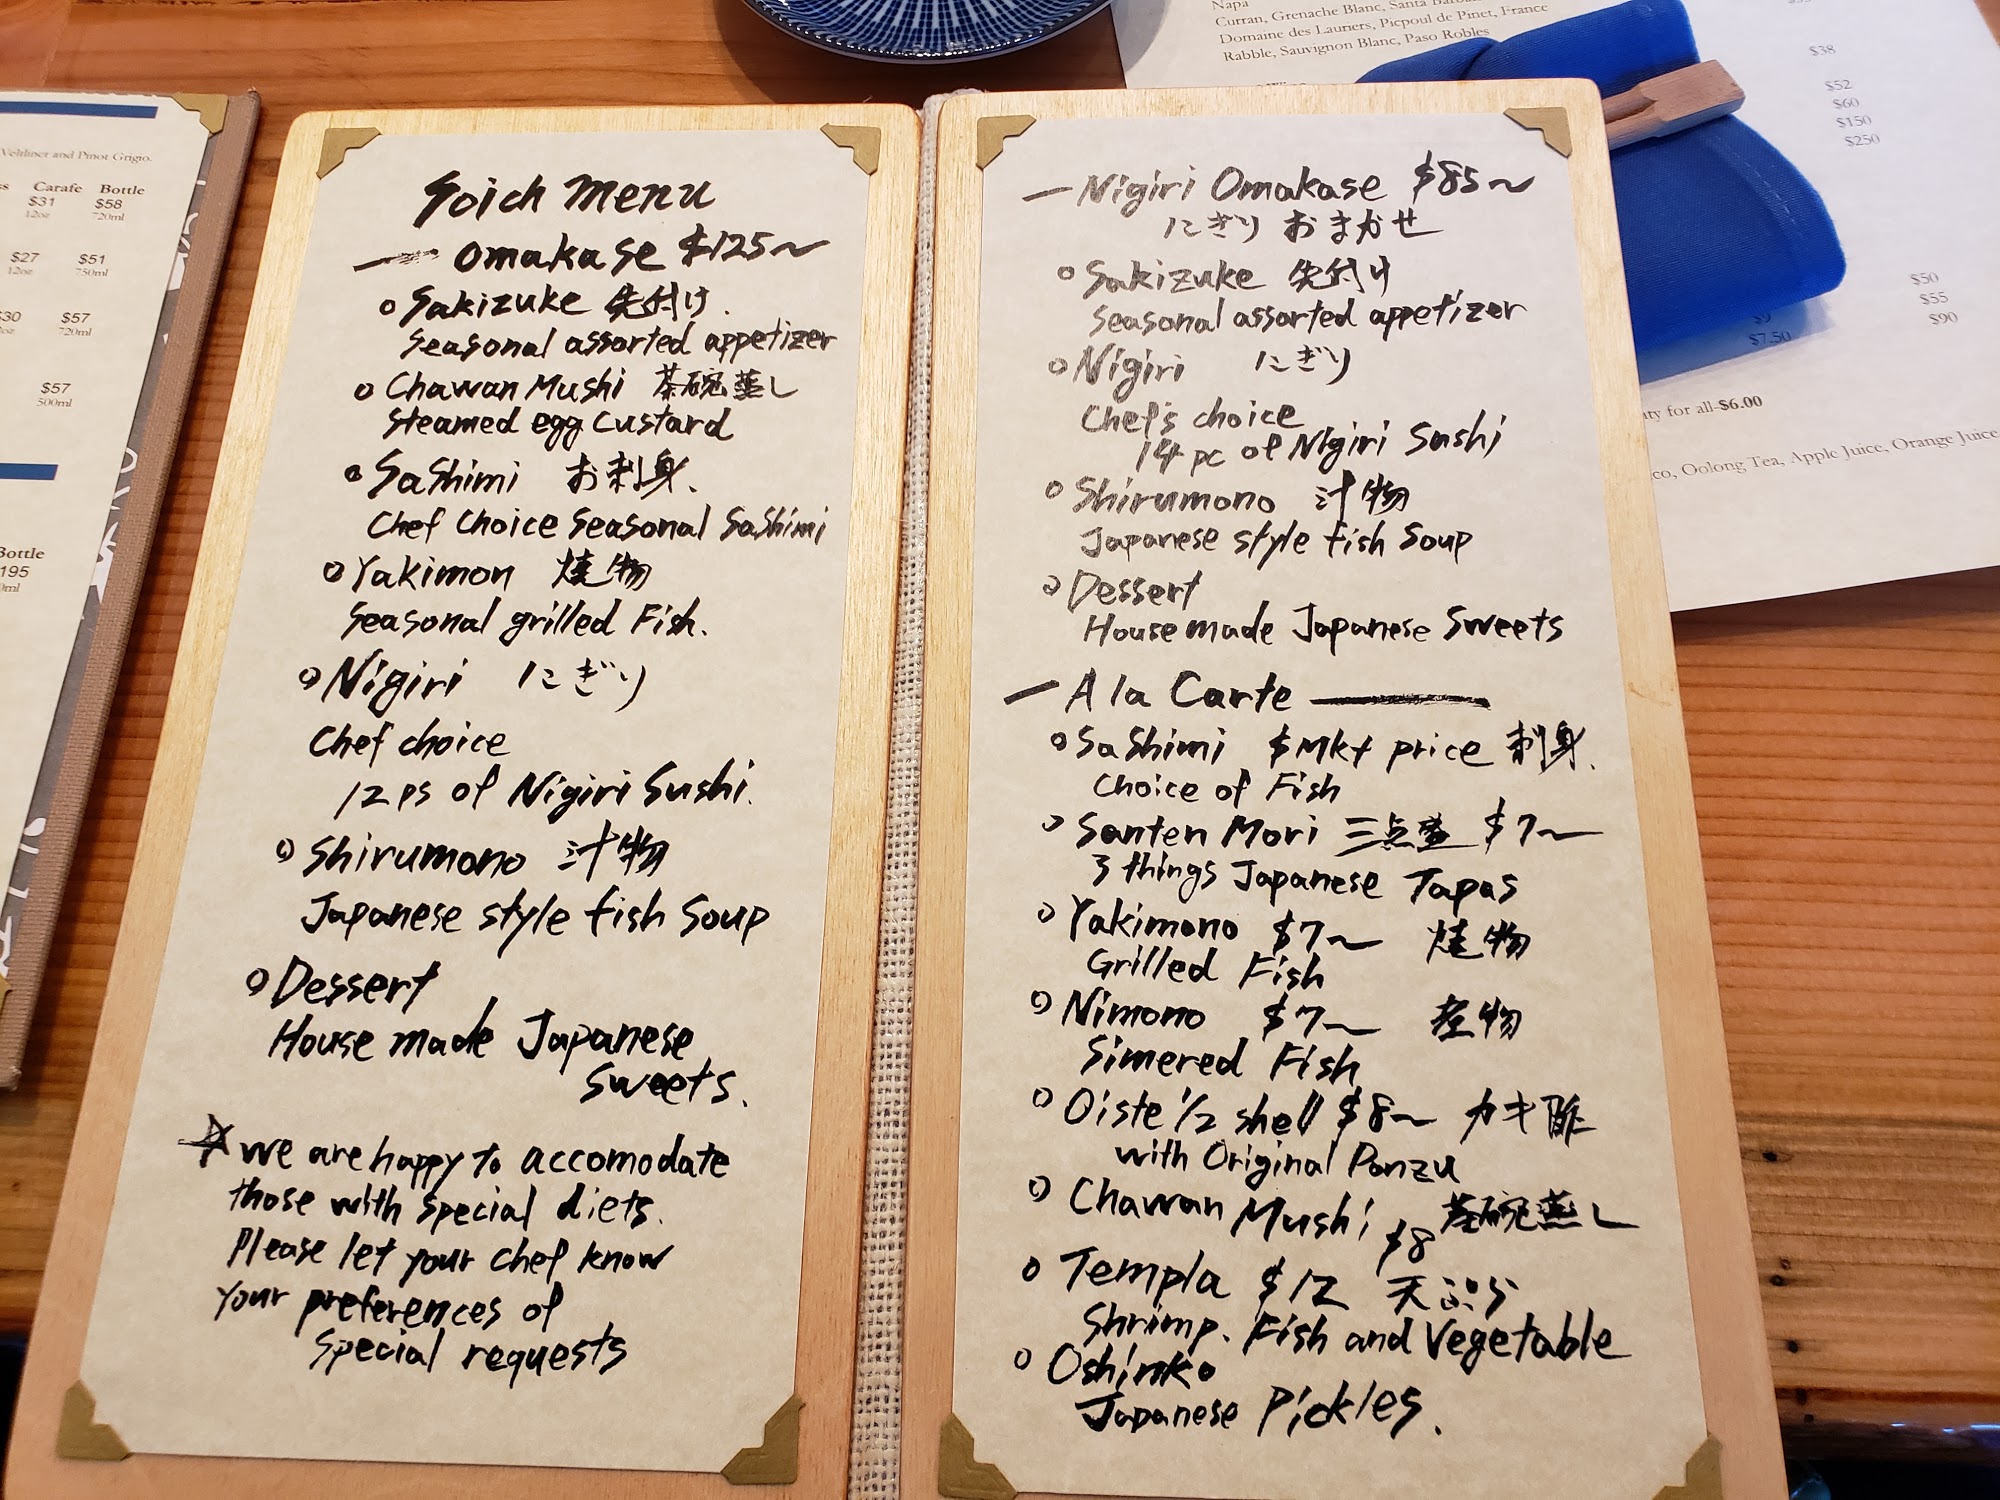 Veltliner and Pinot Grigio.
Carafe Bottle
$31 $58
12oz 720ml
$27 $51
12oz 750ml
$30 $57
720ml
$57
500ml
Bottle
195
Soich Menu
ー Omakase $125～
○ Sakizuke 先付け.
Seasonal assorted appetizer
○ Chawan Mushi 茶碗蒸し
Steamed egg Custard
○ Sashimi お刺身.
Chef Choice Seasonal Sashimi
○ Yakimon 焼物
Seasonal grilled Fish.
○ Nigiri にぎり
Chef choice
12 ps of Nigiri Sushi.
○ Shirumono 汁物
Japanese style fish Soup
○ Dessert
House made Japanese
Sweets.
☆ we are happy to accomodate
those with special diets.
Please let your chef know
your preferences of
special requests
ー Nigiri Omakase $85～
にぎり おまかせ
○ Sakizuke 先付け
Seasonal assorted appetizer
○ Nigiri にぎり
Chef's choice
14 pc of Nigiri Sushi
○ Shirumono 汁物
Japanese style fish Soup
○ Dessert
House made Japanese Sweets
ー A la Carte ー
○ Sashimi $ Mkt price 刺身.
Choice of Fish
○ Santen Mori 三点盛 $7～
3 things Japanese Tapas
○ Yakimono $7～ 焼物
Grilled Fish
○ Nimono $7～ 煮物
Simered Fish
○ Oiste 1/2 shell $8～ カキ酢
with Original Ponzu
○ Chawan Mushi $8 茶碗蒸し
○ Templa $12 天ぷら
Shrimp. Fish and Vegetable
○ Oshinko
Japanese Pickles.
Napa
Curran, Grenache Blanc, Santa Barbara
Domaine des Lauriers, Picpoul de Pinet, France
Rabble, Sauvignon Blanc, Paso Robles
$38
$52
$60
$150
$250
$50
$55
$90
$7.50
ty for all-$6.00
co, Oolong Tea, Apple Juice, Orange Juice